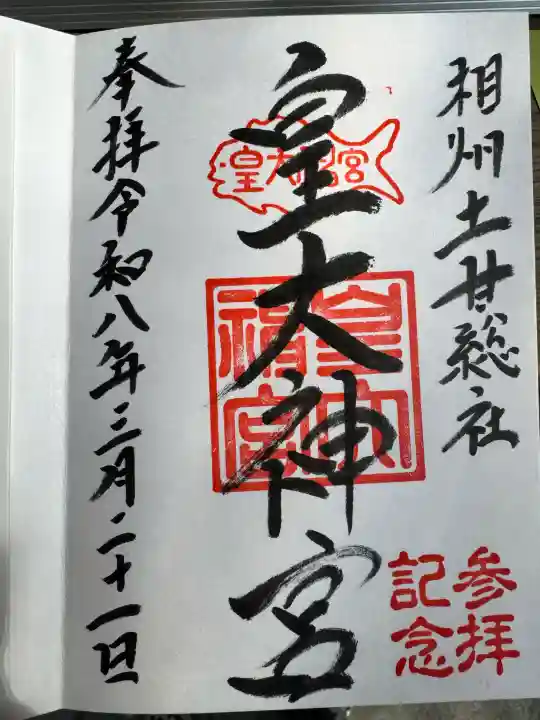 相州土甘総社
皇大神宮
皇大神宮
皇大神宮
参拝
記念
奉拝令和八年三月二十一日